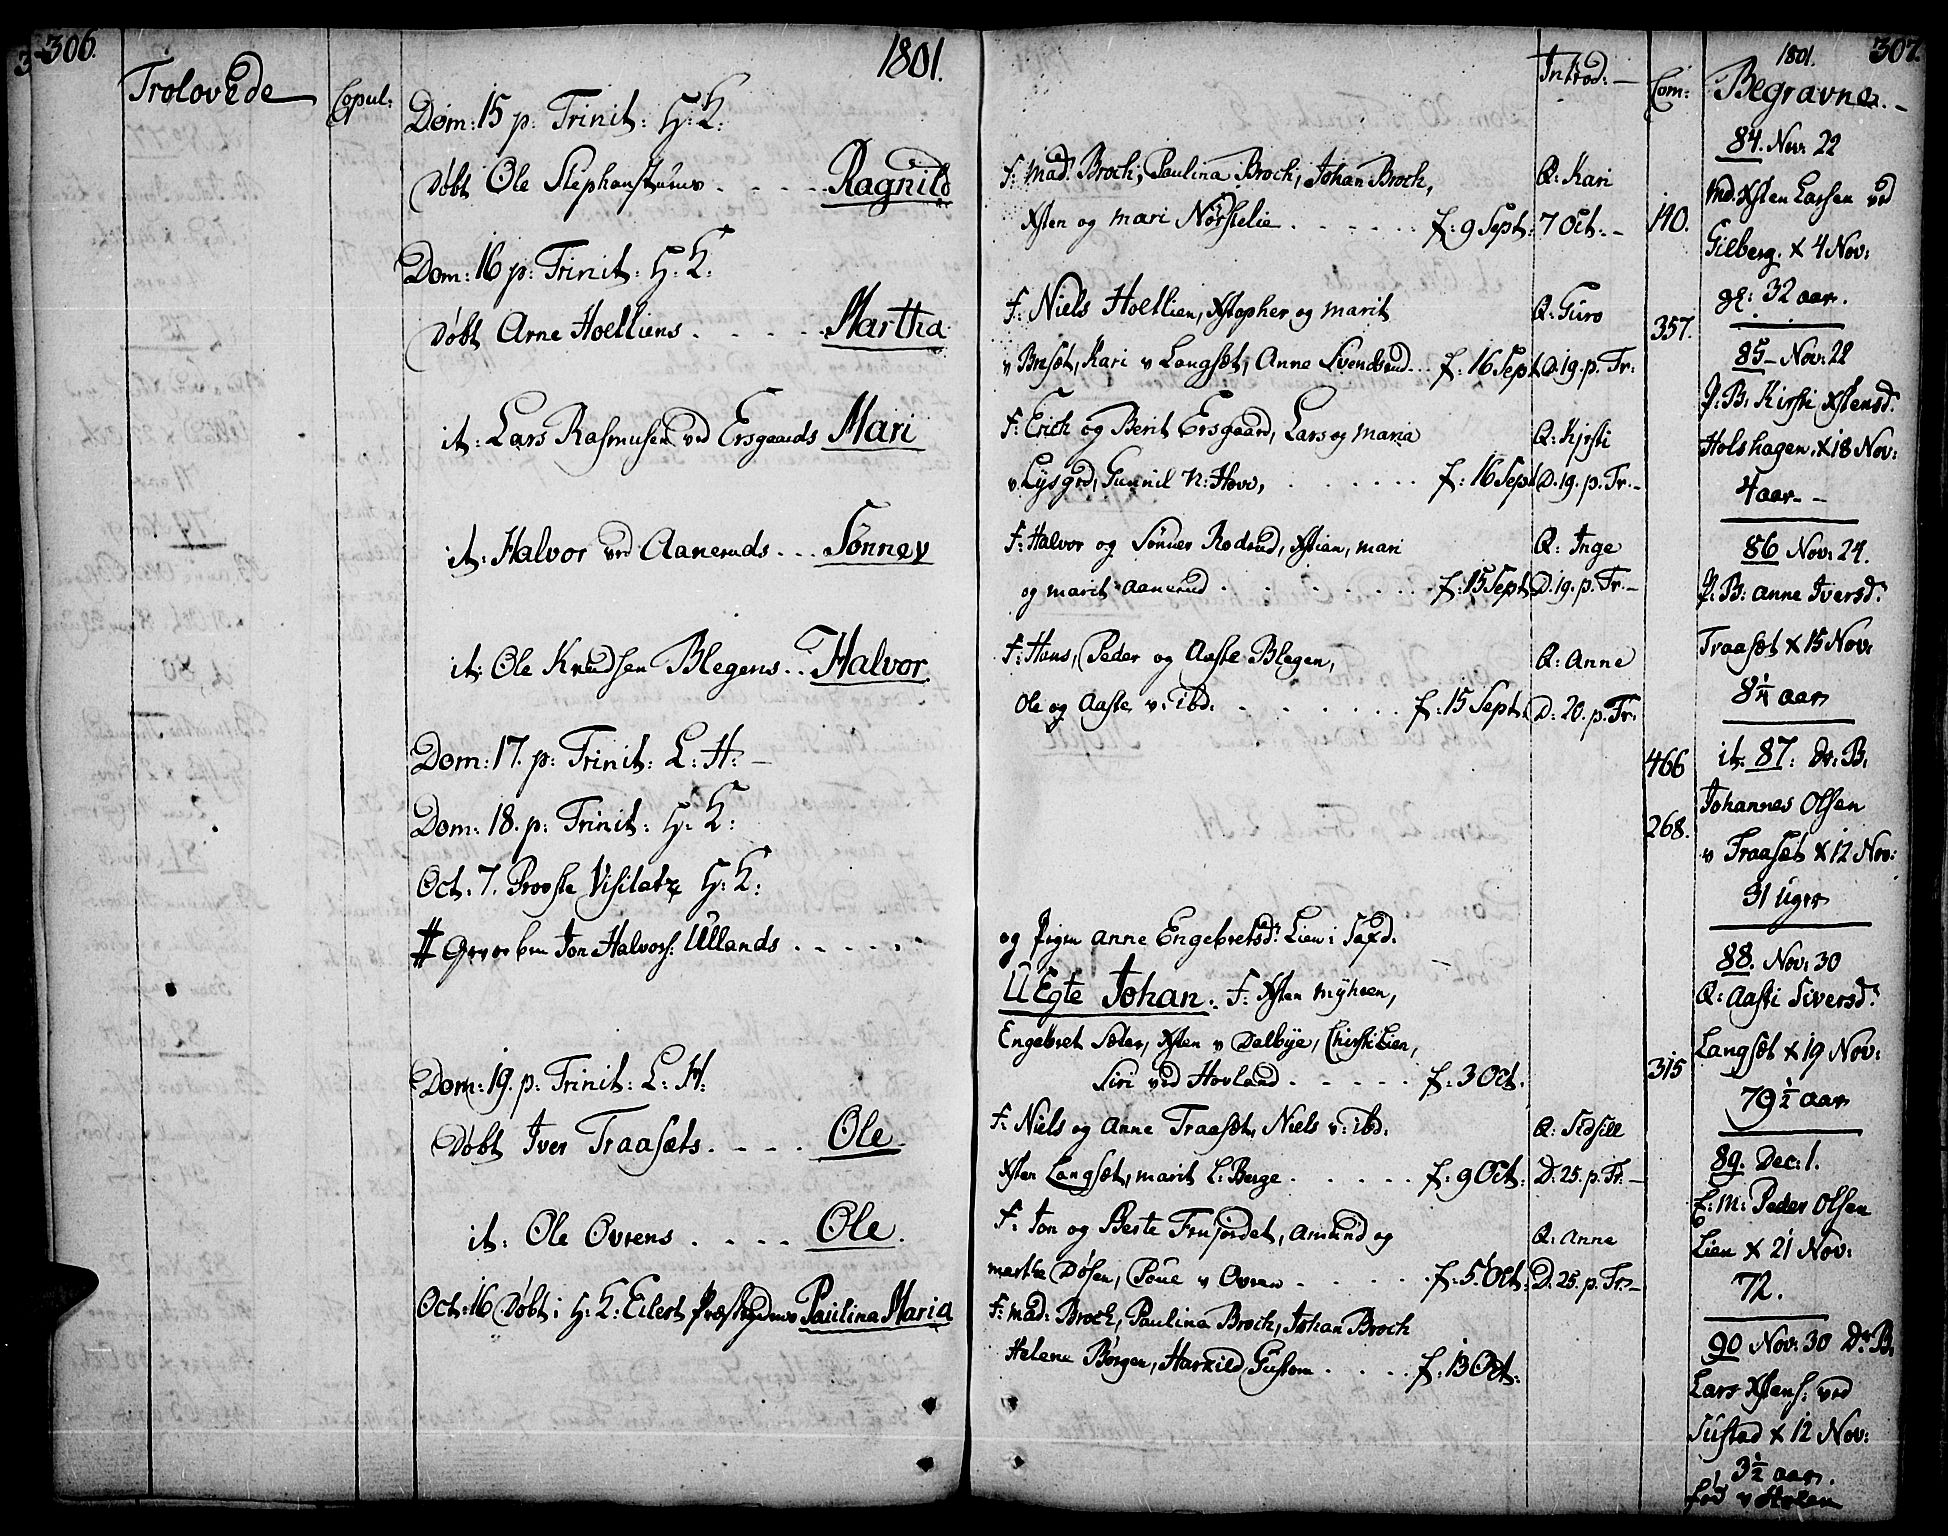 306.
1801.
Trolovede
Copul:
Dom: 15 p: Trinit: H: K:
Døbt Ole - - - - Ragnild
Dom: 16 p: Trinit: H: K:
Døbt Arne Hoelliens - - - - Martha
it: Lars Rasmusen ved Ersgaards Mari
it: Halvor ved Aaneruds - - - Sønnev
it: Ole Knudsen Blegens - - Halvor
Dom: 17. p: Trinit: L: H: -
Dom: 18. p: Trinit: H: K:
Oct. 7. Provste Visitatz H: K:
# Jon Halvors: Ullands - - - - -
Dom: 19. p: Trinit: L: H:
Døbt Iver Traasæts - - - - Ole
it: Ole Ovrens - - - - Ole.
Oct: 16 Døbt i H: K: Eilert Paulina Maria
307.
1801.
Introd: -
Com:
Begravne. -
F: Mad. Broch, Paulina Broch, Johan Broch,
Xsten og Mari Nørstelie - - - - - - f: 9 Sept:
F: Niels Hoellien, Xstopher og Marit
v Brisæt, Kari v Langsæt, Anne Svendsrud - - f: 16 Sept
F: Erich og Berit Ersgaard, Lars og Maria
v Lysgrd, Gunnil n: Hove, - - - - - f: 16 Sept
F: Halvor og Sønnev Rodsrud, Xstian, Mari
og Marit Aanerud - - - - - - f: 15 Sept
F: Hans, Peder og Aaste Blegen,
Ole og Aaste v: ibd: - - - - - - f: 15 Sept.
og Pigen Anne Engebretsd: Lien i
UEgte Johan: F: Xsten Myhren,
Engebret Sæter, Xsten v Dalbye, Chirsti Lien,
Siri ved Hovland - - - - - f: 3 Oct.
F: Niels og Anne Traasæt, Niels v: ibd:
Xsten Langsæt, Marit L: Berge - - - - - f: 9 Oct:
F: Jon og Berte Frujordet, Amund og
Marthe Døsen, Poue v Ovren - - - - - f: 5 Oct:
F: Mad: Broch, Paulina Broch, Johan Broch
Helena Borgen, Harkild Gustom - - - - f: 13 Oct:
Q: Kari
7 Oct: -
Q: Guro
D. 19. p. Tr:
Q: Kjrsti
D. 19. p. Tr: -
Q: Inge
D. 19. p. Tr: -
Q: Anne
D. 20. p. Tr:
Q: Sidsill
D. 25. p. Tr: -
Q: Anne
D. 25. p. Tr: -
140.
357.
466
268.
315
84. Nov: 22
Md. Xsten Larsen ved
Gilberg. X 4 Nov:
gl: 32 aar.
85 - Nov: 22
P: B: Kirsti Xstensd.
Holshagen. X 18 Nov:
4 aar - -
86 Nov: 24.
P: B: Anne Iversd:
Traasæt X 15 Nov:
8 1/4 aar
it. 87: Dr: B.
Johannes Olsen
v Traasæt X 12 Nov:
31 Uger
88. Nov: 30
Q: Aasti Siversd:
Langsæt X 19 Nov:
79 1/2 aar
89. Dec: 1.
E: M: Peder Olsen
Lien X 21 Nov:
72.
90 Nov: 30 Dr B.
Lars Xstens: ved
Sustad X 12 Nov:
3 1/2 aar.
fød v Holen